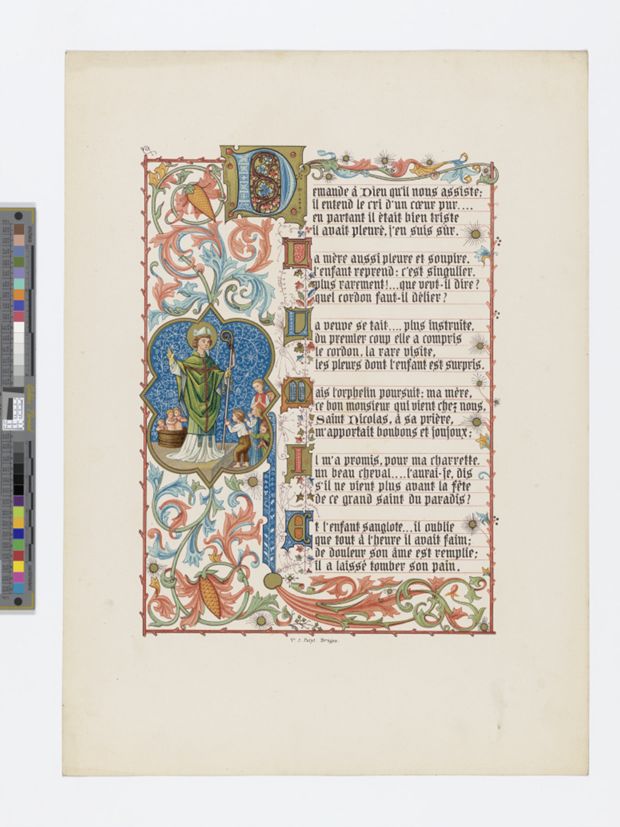 Demande à Dieu qu'il nous assiste;
il entend le cri d'un cœur pur....
en partant il était bien triste
il avait pleuré, j'en suis sûr.
La mère aussi pleure et soupire.
l'enfant reprend: c'est singulier.
plus rarement!...que veut-il dire?
quel cordon faut-il délier?
La veuve se tait.... plus instruite,
du premier coup elle a compris
le cordon, la rare visite,
les pleurs dont l'enfant est surpris.
Mais l'orphelin poursuit: ma mère,
ce bon monsieur qui vient chez nous,
Saint Nicolas, à sa prière,
m'apportait bonbons et joujoux;
Il m'a promis, pour ma charrette.
un beau cheval....l'aurai-je, dis
s'il ne vient plus avant la fête
de ce grand saint du paradis?
Et l'enfant sanglote...il oublie
que tout à l'heure il avait faim;
de douleur son âme est remplie;
il a laissé tomber son pain.
Bruges.